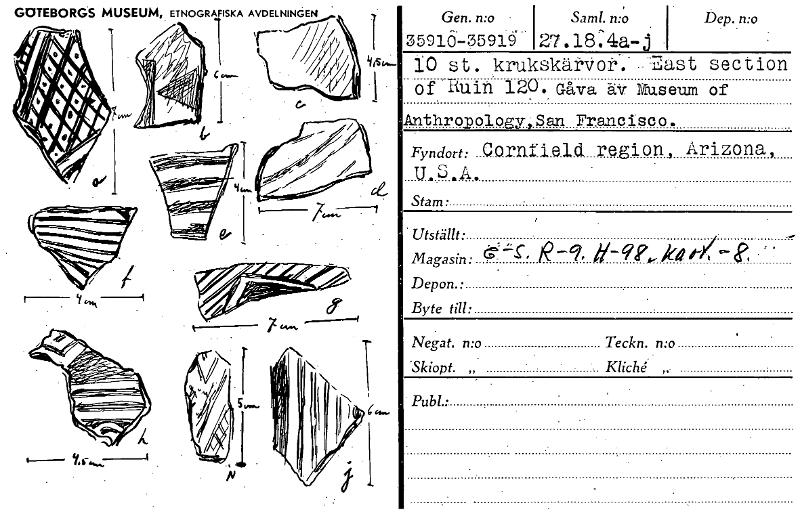 GÖTEBORGS MUSEUM, ETNOGRAFISKA AVDELNINGEN
7cm
a
6cm
b
4,5cm
c
4cm
e
7cm
d
4cm
f
7cm
g
4,5cm
h
5cm
6cm
j
Gen. n:o Saml. n:o Dep. n:o
35910-35919 27.18.4a-j
10 st. krukskärvor. East section
of Ruin 120. Gåva av Museum of
Anthropology,San Francisco.
Fyndort: Cornfield region, Arizona,
U.S.A.
Stam:
Utställt:
Magasin: E-S. R-9. H-98. kart.-8.
Depon.:
Byte till:
Negat. n:o Teckn. n:o
Skiopt. „ Kliché „
Publ.: